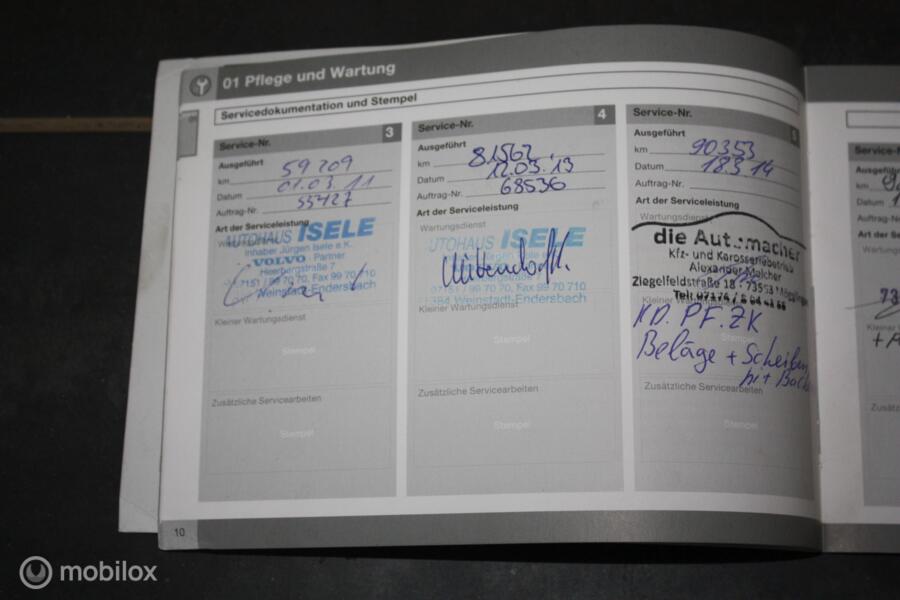 01 Pflege und Wartung
Servicedokumentation und Stempel
Service-Nr. 3
Ausgeführt
km 59209
Datum 01.03.11
Auftrag-Nr. 55427
Art der Serviceleistung
AUTOHAUS ISELE
Inhaber Jürgen Isele e.K.
VOLVO - Partner
Heerbergstraße 7
07151 / 99 70 70, Fax 99 70 710
Weinstadt-Endersbach
Kleiner Wartungsdienst
Stempel
Zusätzliche Servicearbeiten
Stempel
Service-Nr. 4
Ausgeführt
km 81562
Datum 12.03.13
Auftrag-Nr. 68536
Art der Serviceleistung
Wartungsdienst
UTOHAUS ISELE
/ 99 70 70, Fax 99 70 710
384 Weinstadt-Endersbach
Kleiner Wartungsdienst
Stempel
Zusätzliche Servicearbeiten
Stempel
Service-Nr. 5
Ausgeführt
km 90353
Datum 18.3.14
Auftrag-Nr.
Art der Serviceleistung
Wartungsdienst
die Aut macher
Kfz- und Karosseriebetrieb
Alexander
Ziegelfeldstraße 18 73553
Tel: 07176 /
Kleiner Wartungsdienst
KD. PF. ZK
Beläge + Scheiben
hi +
Zusätzliche Servicearbeiten
Stempel
Service-N
Ausgefüh
km
Datum
Auftrag-Nr
Art der Ser
Wartungs
73
Kleiner W
Zusätz
10
mobilox